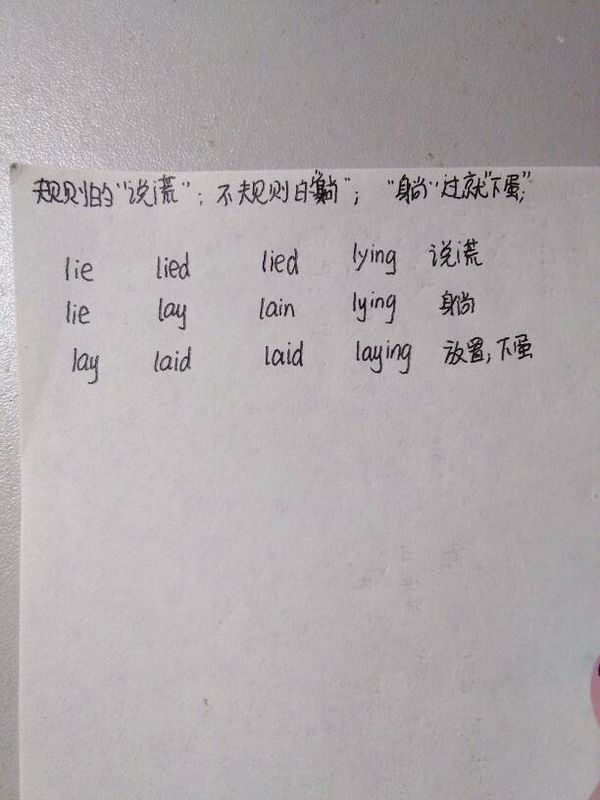 规则的“说谎”；不规则的“躺”；“躺”过就“下蛋”；
lie lied lied lying 说谎
lie lay lain lying 躺
lay laid laid laying 放置，下蛋